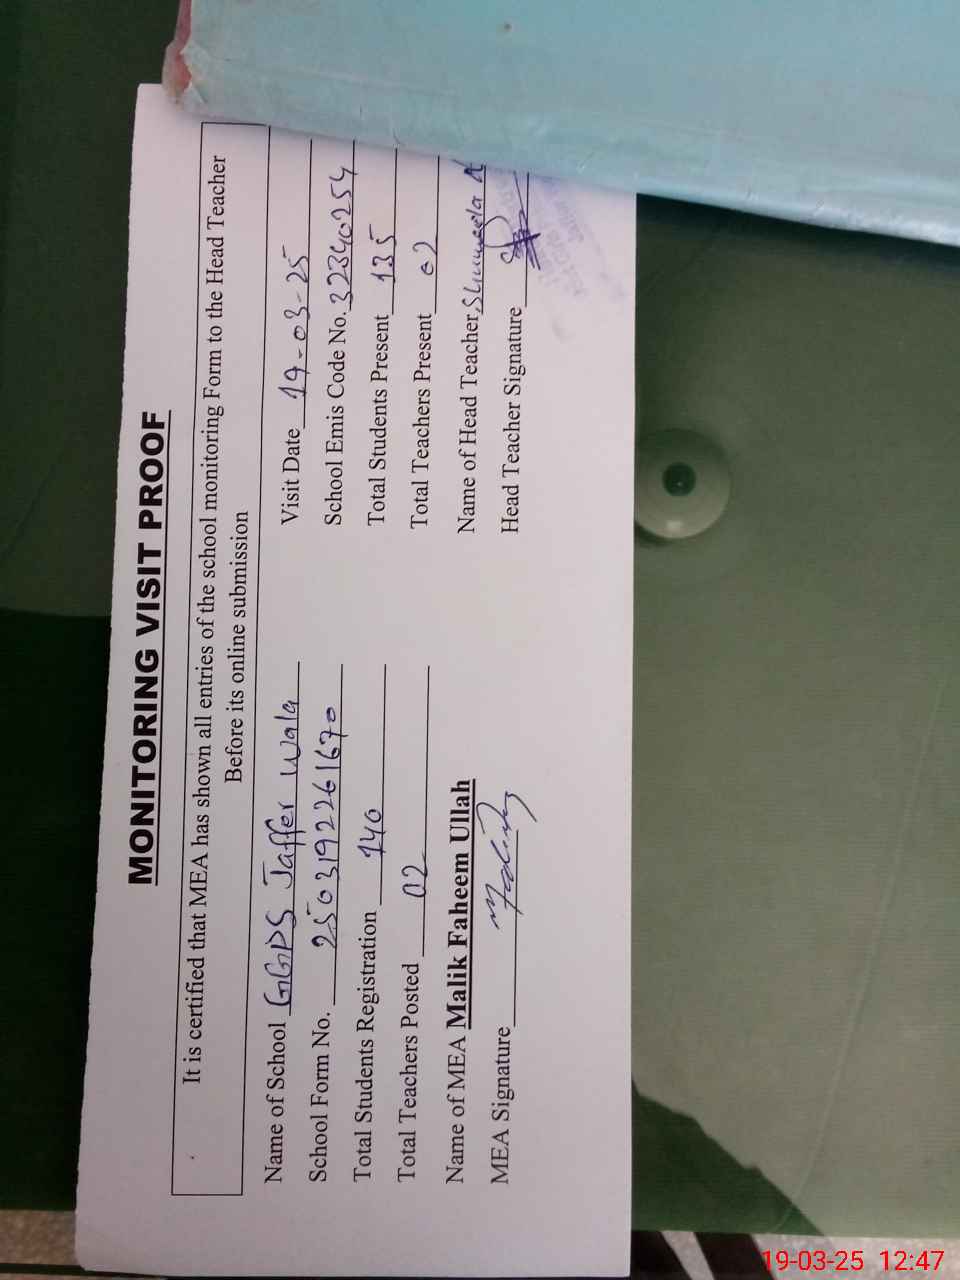 MONITORING VISIT PROOF
It is certified that MEA has shown all entries of the school monitoring Form to the Head Teacher
Before its online submission
Name of School GGPS Jaffer Wala
Visit Date 19-03-25
School Form No. 2503192261670
School Emis Code No. 32340254
Total Students Registration 140
Total Students Present 135
Total Teachers Posted 02
Total Teachers Present 02
Name of MEA Malik Faheem Ullah
Name of Head Teacher Shumeela
MEA Signature
Head Teacher Signature
19-03-25 12:47